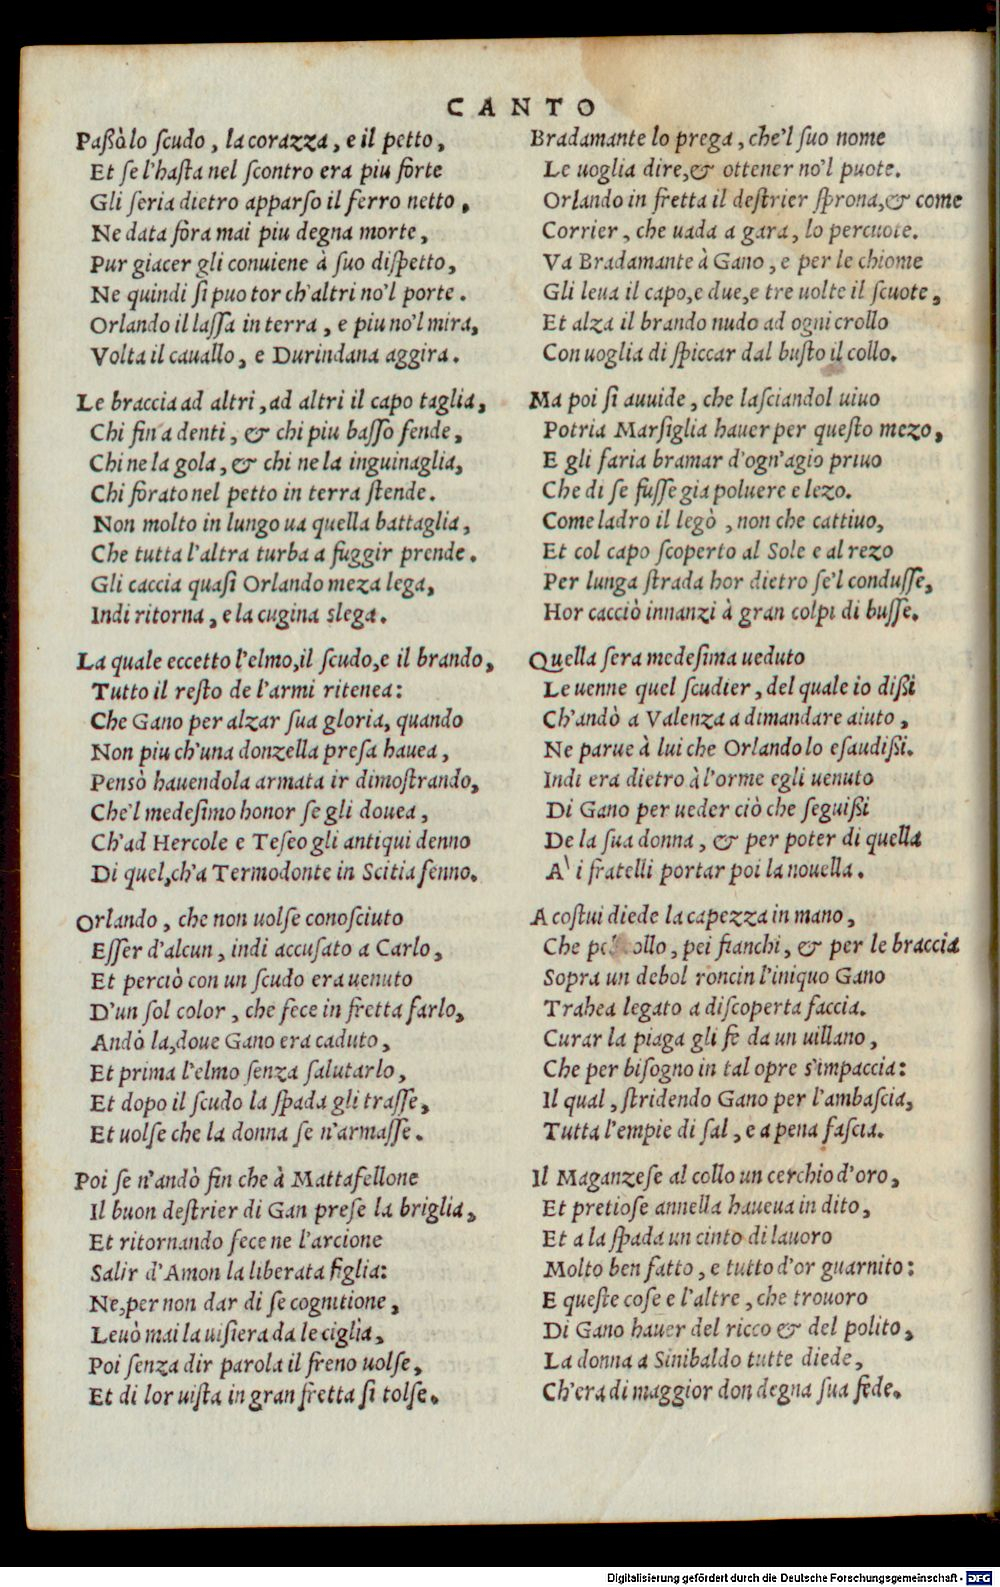 CANTO
Paßà lo scudo, la corazza, e il petto,
Et se l'hasta nel scontro era piu forte
Gli seria dietro apparso il ferro netto,
Ne data fora mai piu degna morte,
Pur giacer gli conuiene à suo dispetto,
Ne quindi si puo tor ch'altri no'l porte.
Orlando il lassa in terra, e piu no'l mira,
Volta il cauallo, e Durindana aggira.
Le braccia ad altri, ad altri il capo taglia,
Chi fin a denti, & chi piu basso fende,
Chi ne la gola, & chi ne la inguinaglia,
Chi forato nel petto in terra stende.
Non molto in lungo ua quella battaglia,
Che tutta l'altra turba a fuggir prende.
Gli caccia quasi Orlando meza lega,
Indi ritorna, e la cugina slega.
La quale eccetto l'elmo, il scudo, e il brando,
Tutto il resto de l'armi ritenea:
Che Gano per alzar sua gloria, quando
Non piu ch'una donzella presa hauea,
Pensò hauendola armata ir dimostrando,
Che'l medesimo honor se gli douea,
Ch'ad Hercole e Teseo gli antiqui denno
Di quel, ch'a Termodonte in Scitia fenno.
Orlando, che non uolse conosciuto
Esser d'alcun, indi accusato a Carlo,
Et perciò con un scudo era uenuto
D'un sol color, che fece in fretta farlo,
Andò la, doue Gano era caduto,
Et prima l'elmo senza salutarlo,
Et dopo il scudo la spada gli trasse,
Et uolse che la donna se n'armasse.
Poi se n'andò fin che à Mattafellone
Il buon destrier di Gan prese la briglia,
Et ritornando fece ne l'arcione
Salir d'Amon la liberata figlia:
Ne, per non dar di se cognitione,
Leuò mai la uisiera da le ciglia,
Poi senza dir parola il freno uolse,
Et di lor uista in gran fretta si tolse.
Bradamante lo prega, che'l suo nome
Le uoglia dire, & ottener no'l puote.
Orlando in fretta il destrier sprona, & come
Corrier, che uada a gara, lo percuote.
Va Bradamante à Gano, e per le chiome
Gli leua il capo, e due, e tre uolte il scuote,
Et alza il brando nudo ad ogni crollo
Con uoglia di spiccar dal busto il collo.
Ma poi si auuide, che lasciandol uiuo
Potria Marsiglia hauer per questo mezo,
E gli faria bramar d'ogn'agio priuo
Che di se fusse gia poluere e lezo.
Come ladro il legò, non che cattiuo,
Et col capo scoperto al Sole e al rezo
Per lunga strada hor dietro se'l condusse,
Hor cacciò innanzi à gran colpi di busse.
Quella sera medesima ueduto
Le uenne quel scudier, del quale io dißi
Ch'andò a Valenza a dimandare aiuto,
Ne parue à lui che Orlando lo esaudißi.
Indi era dietro à l'orme egli uenuto
Di Gano per ueder ciò che seguißi
De la sua donna, & per poter di quella
A' i fratelli portar poi la nouella.
A costui diede la capezza in mano,
Che collo, pei fianchi, & per le braccia
Sopra un debol roncin l'iniquo Gano
Trahea legato a discoperta faccia.
Curar la piaga gli fe da un uillano,
Che per bisogno in tal opre s'impaccia:
Il qual, stridendo Gano per l'ambascia,
Tutta l'empie di sal, e a pena fascia.
Il Maganzese al collo un cerchio d'oro,
Et pretiose annella haueua in dito,
Et a la spada un cinto di lauoro
Molto ben fatto, e tutto d'or guarnito:
E queste cose e l'altre, che trouoro
Di Gano hauer del ricco & del polito,
La donna a Sinibaldo tutte diede,
Ch'era di maggior don degna sua fede.
Digitalisierung gefördert durch die Deutsche Forschungsgemeinschaft - DFG